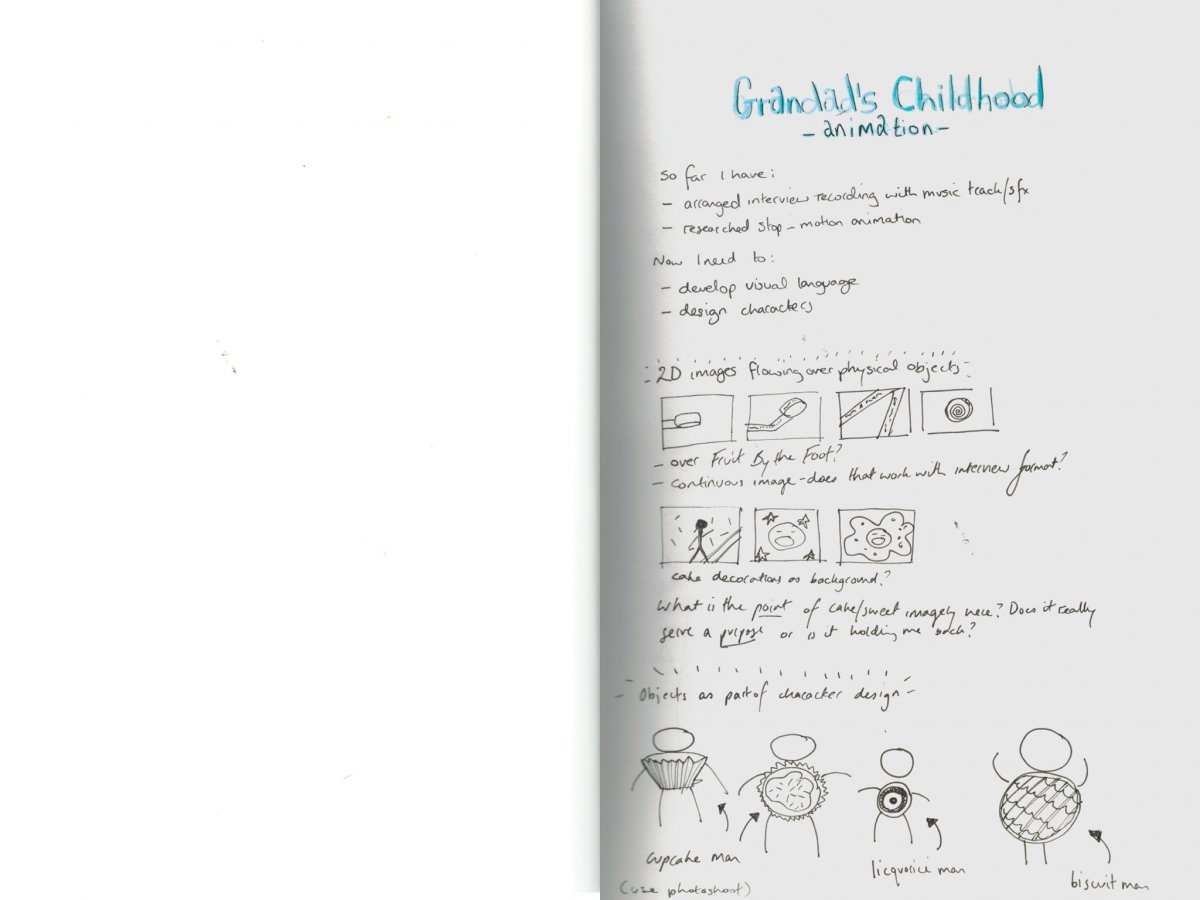 Grandad's Childhood
- animation -
So far I have:
- arranged interview recording with music track/sfx
- researched stop-motion animation
Now I need to:
- develop visual language
- design characters
2D images flowing over physical objects
- over Fruit By the Foot?
- continuous image - does that work with interview format?
cake decorations as background?
What is the point of cake/sweet imagery here? Does it really
serve a purpose or is it holding me back?
Objects as part of characker design
cupcake man
(use photoshoot)
licquorice man
biscuit man